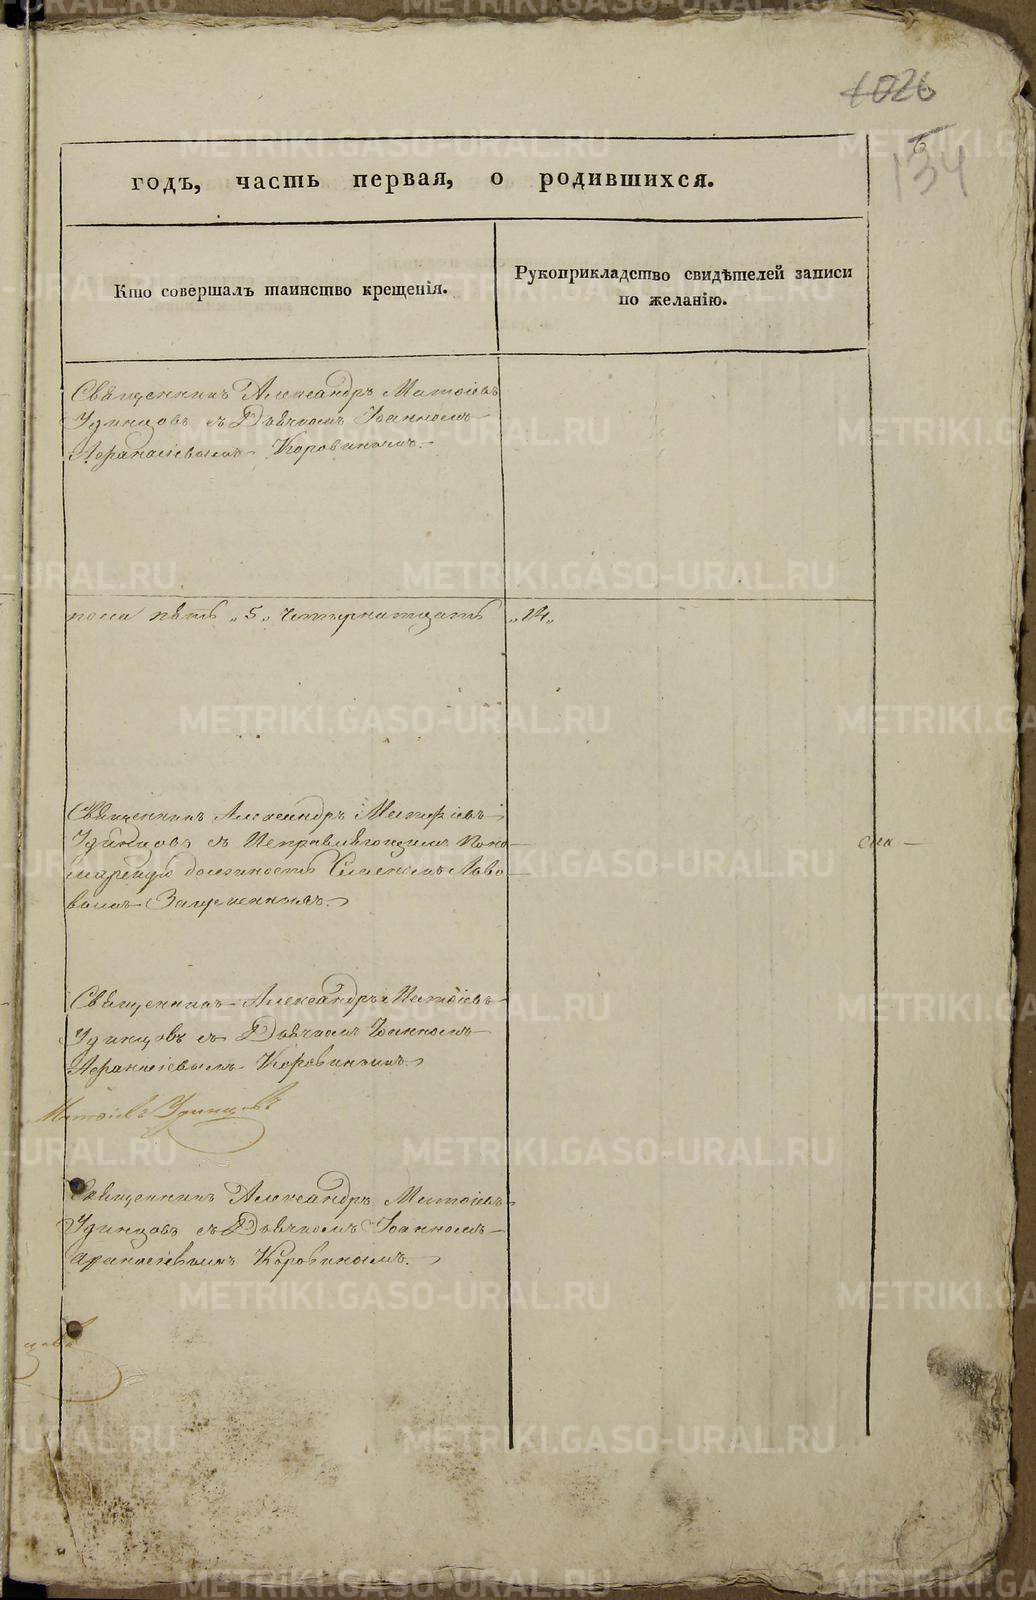 1026
134
годъ, часть первая, о родившихся.
Кто совершалъ таинство крещенія.
Рукоприкладство свидѣтелей записи
по желанію.
Священникъ Александръ Матѳіевъ
Удинцовъ съ Дьячкомъ Іоанномъ
Афанасіевымъ Коровинымъ.
пола пять „5„ Четырнатцать „14„
Священникъ Александръ Матфіевъ
Удинцовъ съ Исправляющимъ Поно-
марскую должность Семеномъ Льво-
вымъ
Священникъ Александръ Матѳіевъ
Удинцовъ съ Дьячкомъ Іоанномъ
Афанасіевымъ Коровинымъ.
Матѳіевъ Удинцовъ
Священникъ Александръ Матѳіевъ
Удинцовъ съ Дьячкомъ Іоанномъ
Афанасіевымъ Коровинымъ.
METRIKI.GASO-URAL.RU